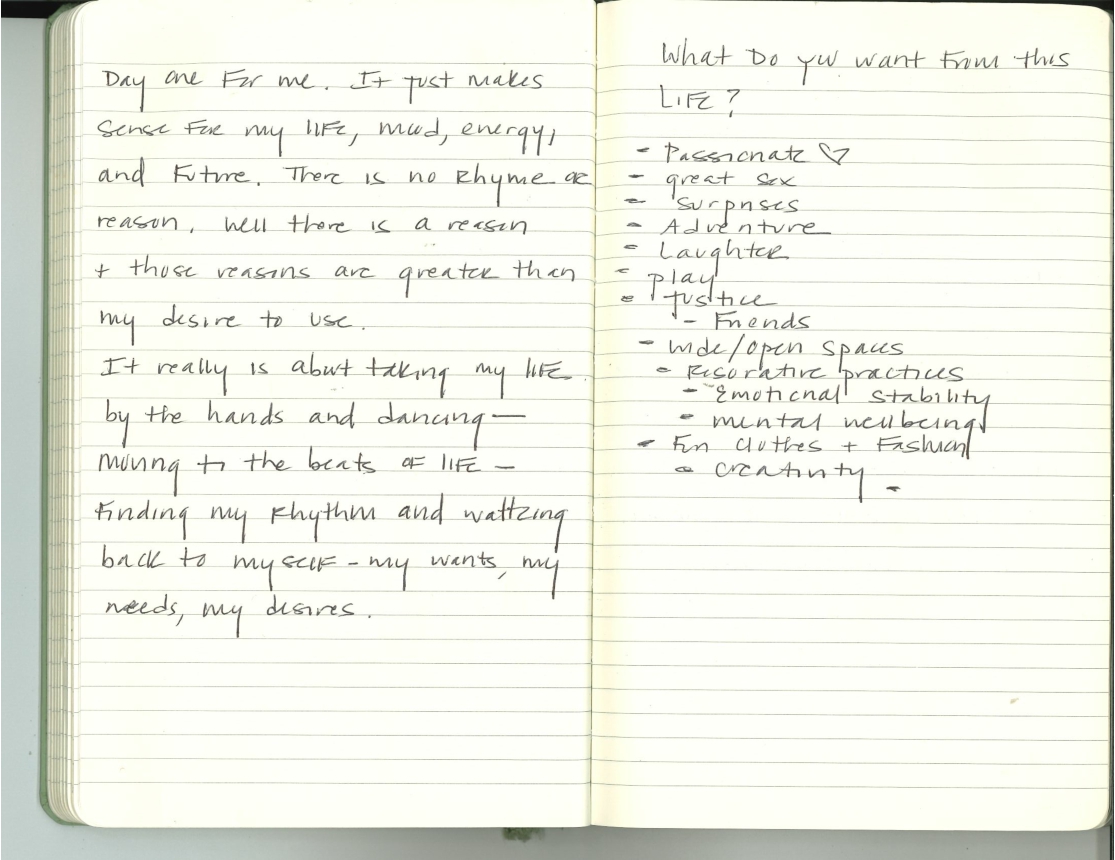 Day one For me. It just makes
sense For my life, mood, energy,
and Future. There is no Rhyme or
reason. Well there is a reason
+ those reasons are greater than
my desire to use.
It really is about taking my life
by the hands and dancing—
moving to the beats of life –
Finding my Rhythm and waltzing
back to myself – my wants, my
needs, my desires.
What Do you want From this
LIFE?
- Passionate ♡
- great sex
- Surprises
- Adventure
- Laughter
- play
- justice
- Friends
- wide/open spaces
- Risorative practices
- Emotional stability
- mental wellbeing
- Fun Clothes + Fashion
- creativity
-